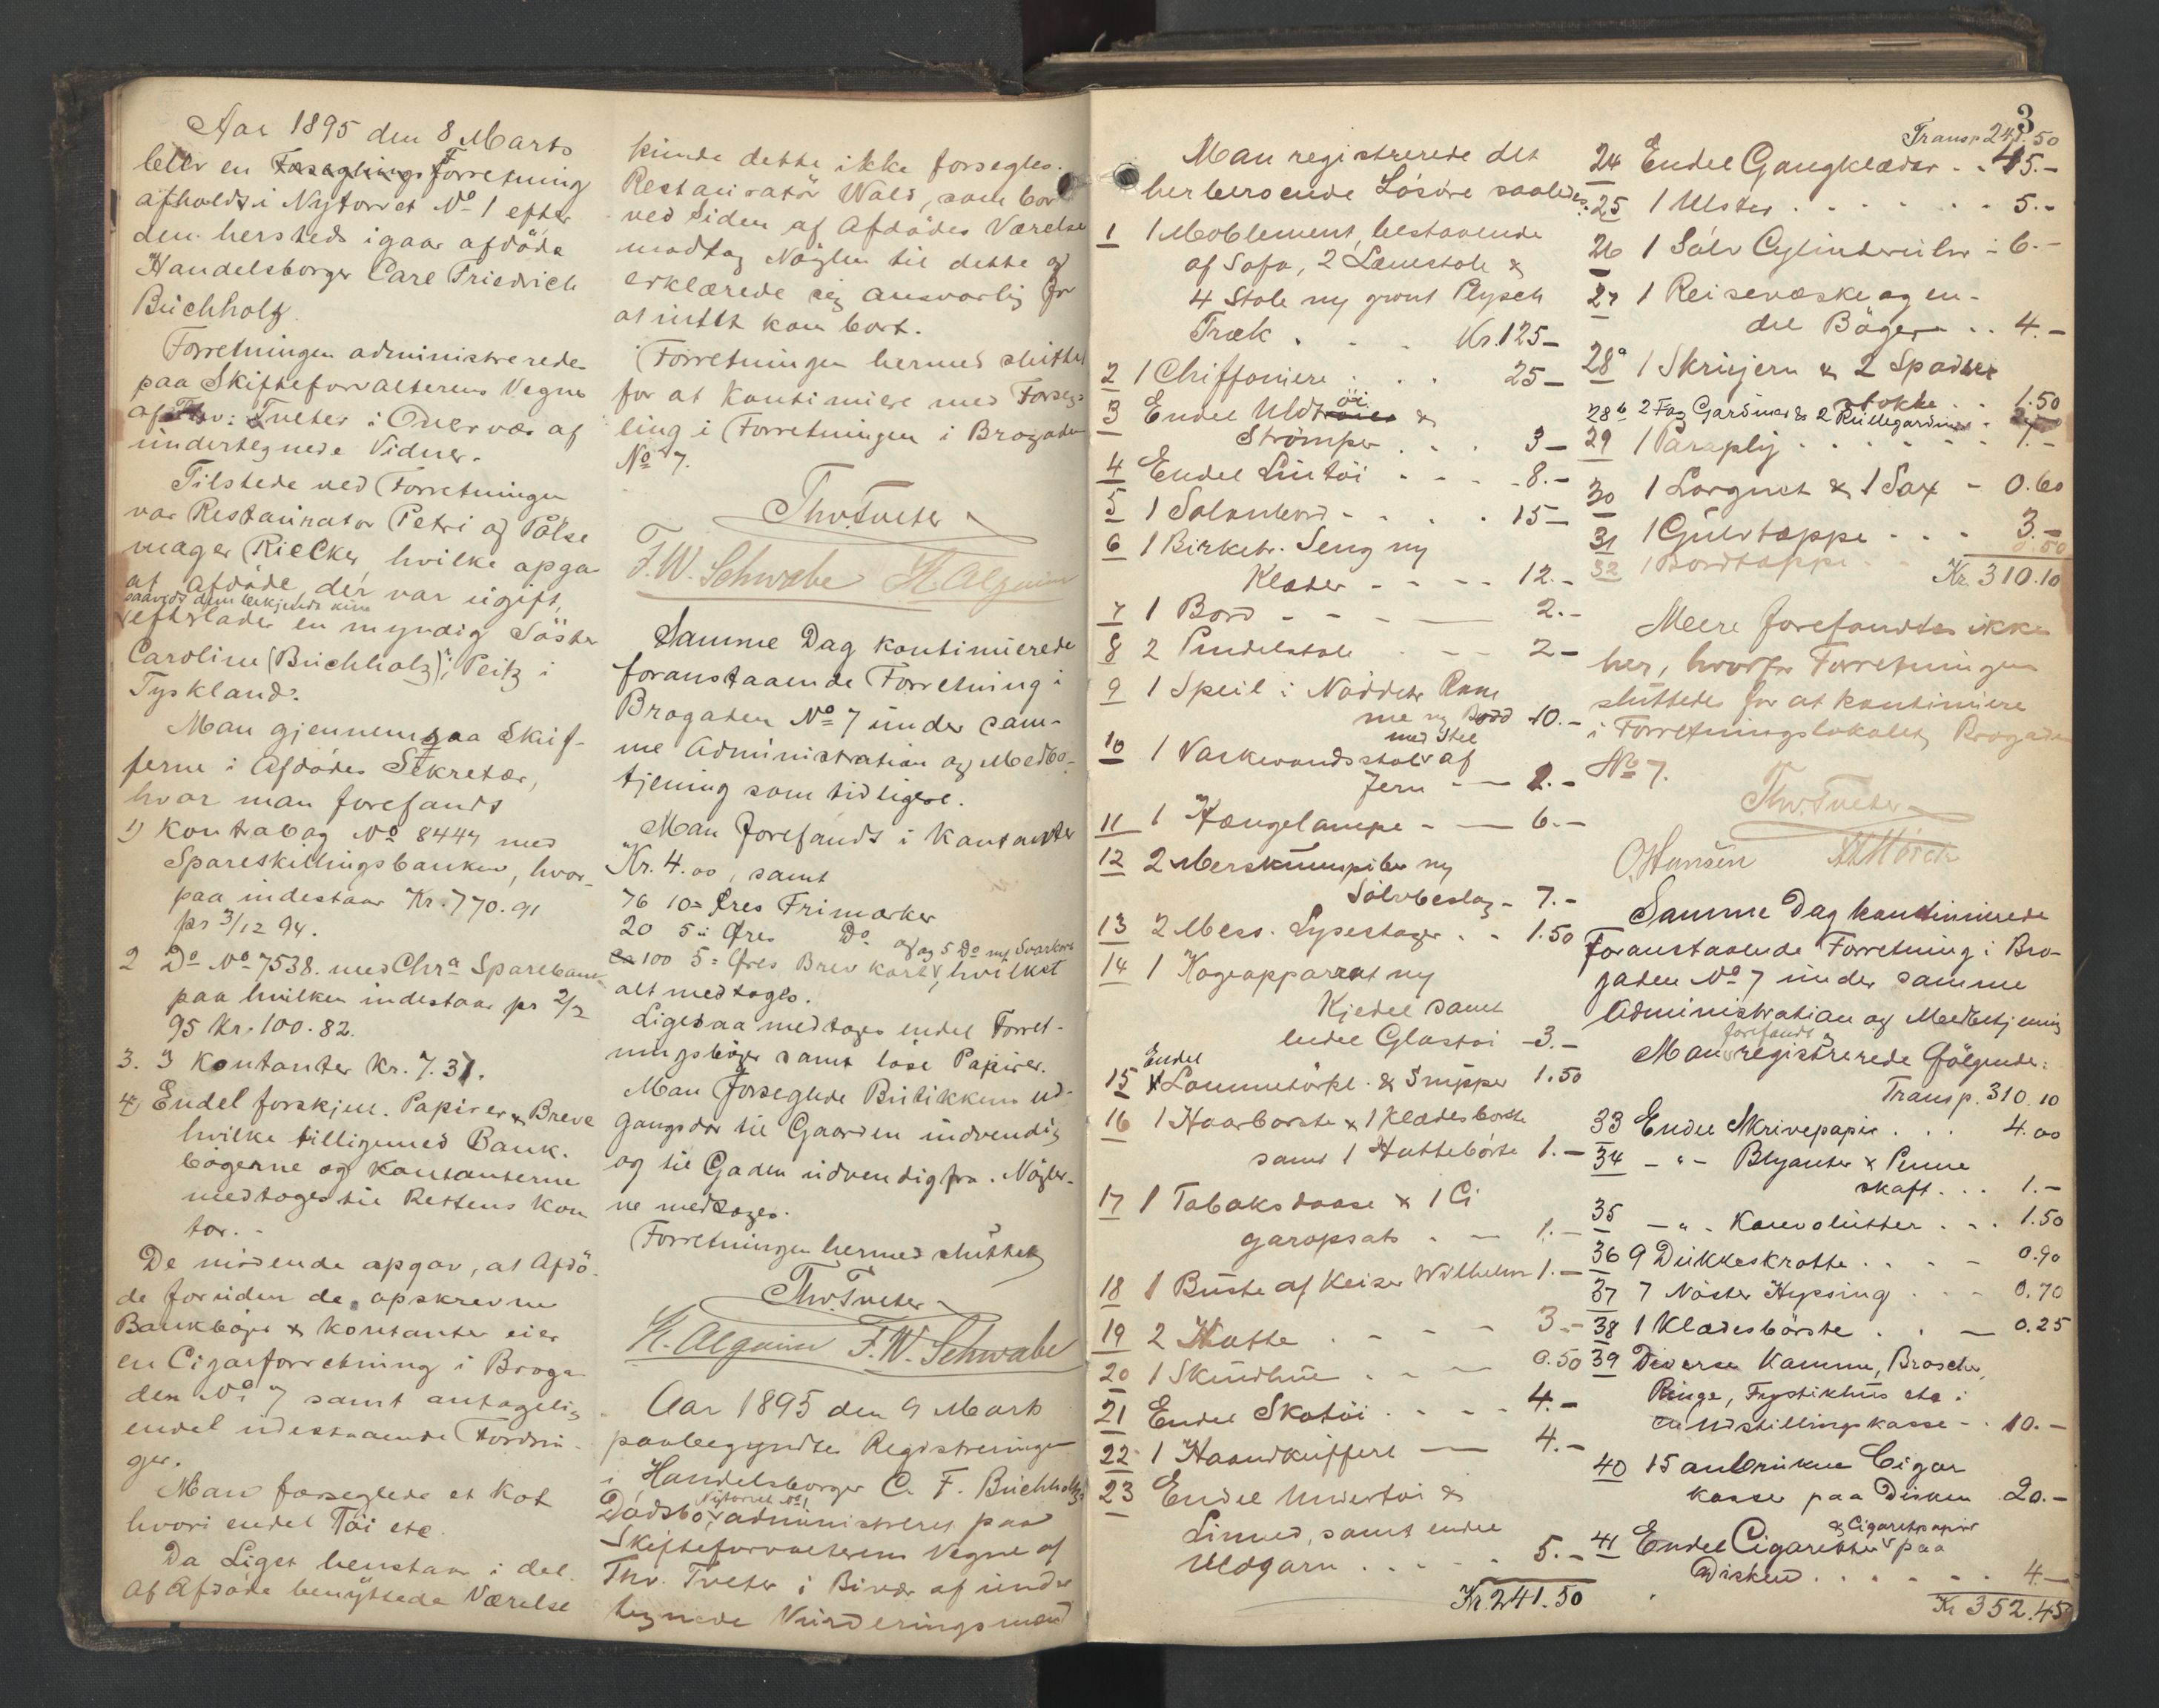 Aar 1895 den 8 Marts
blev en Forseglings Forretning
afholdt i Nytorvet No 1 efter
den hersteds igaar afdöde
Handelsborger Carl Friedrich
Buchholz.
Forretningen administreredes
paa Skifteforvalterens Vegne
af Thv: Tveter i Overvær af
undertegnede Vidner.
Tilstede ved Forretningen
var Restauratør Petri og Pölse
mager Riecker, hvilke opga
at Afdöde der var ugift,
saavidt dem bekjendt kun
efterlader en myndig Söster
Caroline (Buchholz) i Peitz i
Tyskland.
Man gjennemsaa Skuf-
ferne i Afdödes Sekretær,
hvor man forefandt
1) Kontrabog No 8447 med
Spareskillingsbanken, hvor-
paa indestaar Kr. 770.91
pr 3/12 94.
2 Do No 7538. med Chra Sparebank
paa hvilken indestaar pr 2/2
95 Kr. 100.82.
3. I Kontanter Kr. 7.31.
4) Endel forskjell. Papirer & Breve
hvilke tilligemed Bank-
bögerne og Kontanterne
medtoges til Rettens Kon
tor.-
De mödende opgav, at Afdö-
de foruden de opskrevne
Bankböger & Kontanter eier
en Cigarforretning i Broga
den No 7 samt antagelig
endel udestaaende Fordrin-
ger.
Man forseglede et Kot
hvori endel Töi etc.
Da Liget henstaar i det
af Afdöde benyttede Værelse
kunde dette ikke forsegles.
Restauratör Wald, som bor
ved Siden af Afdödes Værelse
modtog Nöglen til dette og
erklærede sig ansvarlig for
at intet kom bort.
Forretningen hermed sluttet
for at kontinuere med Forseg-
ling i Forretningen i Brogaden
No 7.
Thv. Tveter
F. W. Schwabe H. Alguin
Samme Dag kontinuerede
foranstaaende Forretning i
Brogaden No 7 under sam-
me Administration og Medbe-
tjening som tidligere.
Man forefandt i Kontanter
Kr. 4.00, samt
76 10= Öres Frimærker
20 5= Öres Do
og 5 Do med Svarkort
100 5= Öres Brevkort, hvilket
alt medtoges.
Ligesaa medtoges endel Forret-
ningsböger samt löse Papirer.
Man forseglede Butikkens ud-
gangsdör til Gaarden indvendig
og til Gaden udvendig fra. Nögler-
ne medtoges.
Forretningen hermed sluttet
Thv. Tveter
H. Alguin F. W. Schwabe
Aar 1895 den 9 Marts
paabegyndtes Registreringen
i Handelsborger C. F. Buchholtz's
Nytorvet No 1
Dödsbo, administreret paa
Skifteforvalterens Vegne af
Thv. Tveter i Bivær af under
tegnede Vurderingsmænd
3
Man registrerede det
herberoende Lösöre saaledes:
1 1 Moblement, bestaaende
af Sofa, 2 Lænestole &
4 Stole m/ grönt Plysch
Træk . . . Kr. 125-
2 1 Chiffoniere . . . 25-
3 Endel Uldtöi &
Strömper . . . 3-
4 Endel Lintöi - - - 8.-
5 1 Salonbord - - . . 15-
6 1 Birketr. Seng m/
Klæder - - - - 12.-
7 1 Bord - - - 2.-
8 2 Pindestole - - - 2-
9 1 Speil i Nöddetr. Ram
me m/ Bord 10.-
med Stel
10 1 Vaskevandsstol af
Jern - - 2.-
11 1 Hængelampe - - 6.-
12 2 Merskumspiber m/
Sölvbeslag - 7.-
13 2 Mess. Lysestager . . 1.50
14 1 Kogeapparat m/
Kjedel samt
endel Glastöi - 3.-
Endel
15 Lommetörkl. & Snipper 1.50
16 1 Haarbørste & 1 Klædesbørste
samt 1 Hattebörste 1.-
17 1 Tobaksdaase & 1 Ci
garopsats . - 1.-
18 1 Buste af Keiser Wilhelm 1.-
19 2 Hatte . - - - 3.-
20 1 Skindhue . - - 0.50
21 Endel Skotöi . - - - 4.-
22 1 Haandkuffert - 4.-
23 Endel Undertöi &
Linned, samt endel
Uldgarn . . . - - 5.-
Kr. 241.50
Transp. 241.50
24 Endel Gangklæder . . 45.-
25 1 Ulster . . . . . . 5.-
26 1 Sölv Cylinderuhr - 6.-
27 1 Reisevæske og en-
del Böger . . 4.-
28a 1 Skrujern & 2 Spadser
stokke . . 1.50
28b 2 Fag Gardiner & 2 Rullegardiner -
29 1 Paraply . . . . . . 1.-
30 1 Lorgnet & 1 Sax - 0.60
31 1 Gulvtæppe . . . 3.-
32 1 Bordtæppe . . 0.50
Kr. 310.10
Mere forefandtes ikke
her, hvorfor Forretningen
sluttedes for at kontinuere
i Forretningslokalet, Brogaden
No 7.
Thv. Tveter
O. Hansen
Samme Dag kontinuerede
foranstaaende Forretning i Bro-
gaden No 7 under samme
Administration og Medbetjening
forefandt &
Man registrerede fölgende:
Transp. 310.10
33 Endel Skrivepapir . . . 4.00
34 - " - Blyanter & Penne
skaft . . . 1.-
35 - " - Konvolutter . . . 1.50
36 9 Dukkeskrotte . . . - 0.90
37 7 Nöster Hyssing . - - 0.70
38 1 Klædesbörste . . - 0.25
39 Diverse Kamme, Brosche,
Ringe, Fyrstikhus etc i
en Udstillingskasse - . 10.-
40 15 anbrukne Cigar
kasser paa Disken 20.-
& Cigaretpapir
41 Endel Cigaretter paa
Disken . . . . . . 4.-
Kr 352.45